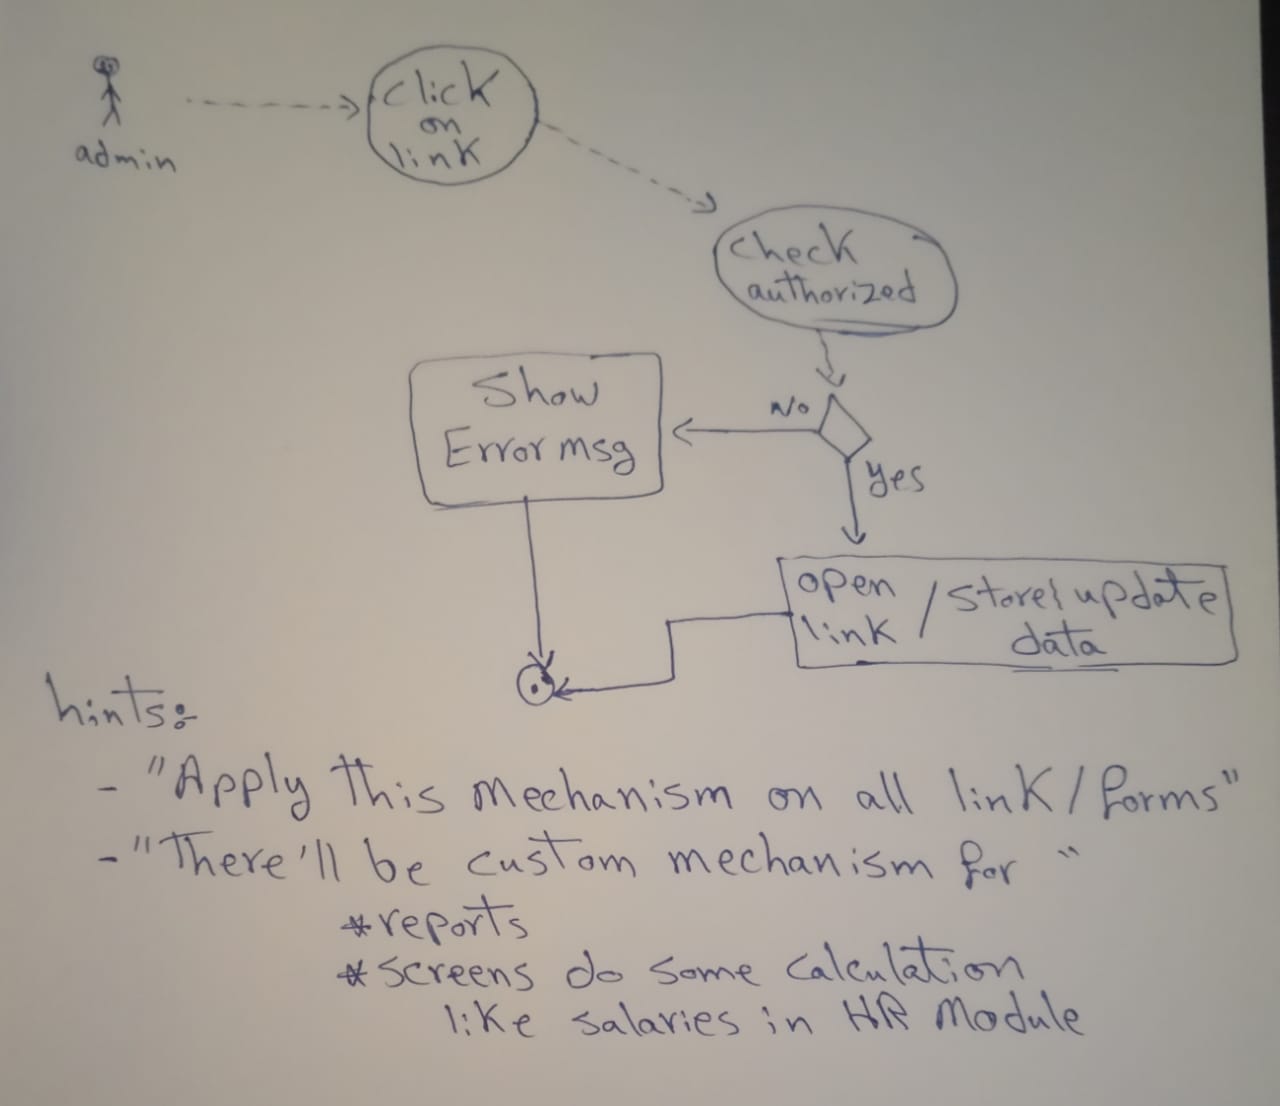 click
on
link
admin
check
authorized
Show
Error msg
No
yes
open
link / store/ update
data
hints:-
- "Apply this mechanism on all link/forms"
- "There'll be custom mechanism for "
*reports
*screens do some calculation
like salaries in HR Module